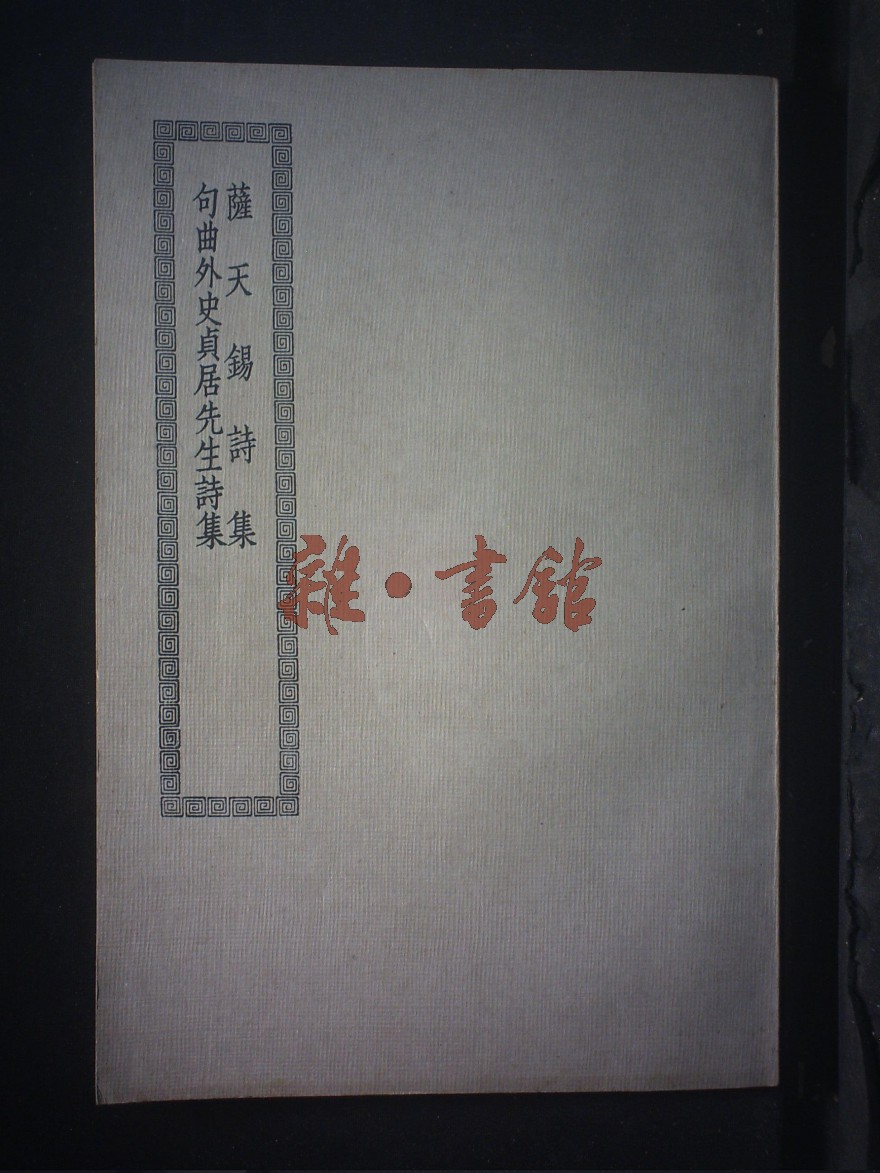 薩天錫詩集
句曲外史貞居先生詩集
雜·書館